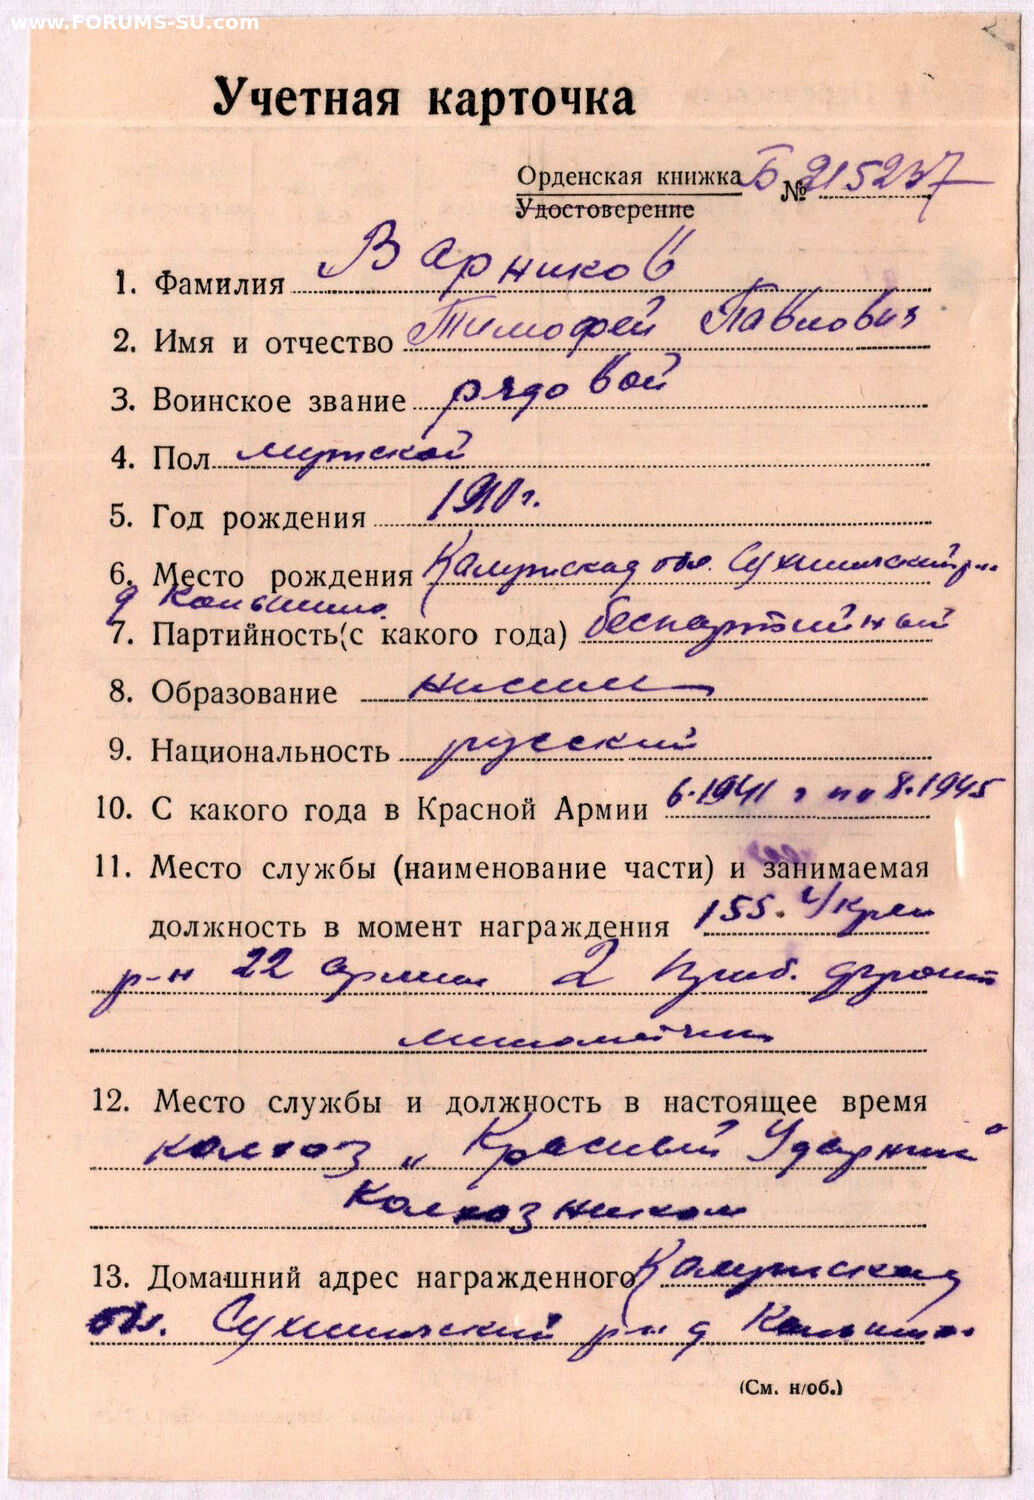 www.FORUMS-SU.com
Учетная карточка
Орденская книжка Б № 215237
Удостоверение
1. Фамилия Варников
2. Имя и отчество Тимофей Павлович
3. Воинское звание рядовой
4. Пол мужской
5. Год рождения 1910 г.
6. Место рождения Калужская обл. Сухиничский р-н
д
7. Партийность (с какого года) беспартийный
8. Образование
9. Национальность русский
10. С какого года в Красной Армии 6.1941 г по 8.1945
11. Место службы (наименование части) и занимаемая
должность в момент награждения 155.
р-н 22 армии 2 Приб. фронт
минометчик
12. Место службы и должность в настоящее время
колхоз „ Красный Ударник"
Колхозником
13. Домашний адрес награжденного Калужская
обл. Сухиничский р-н д
(См. н/об.)